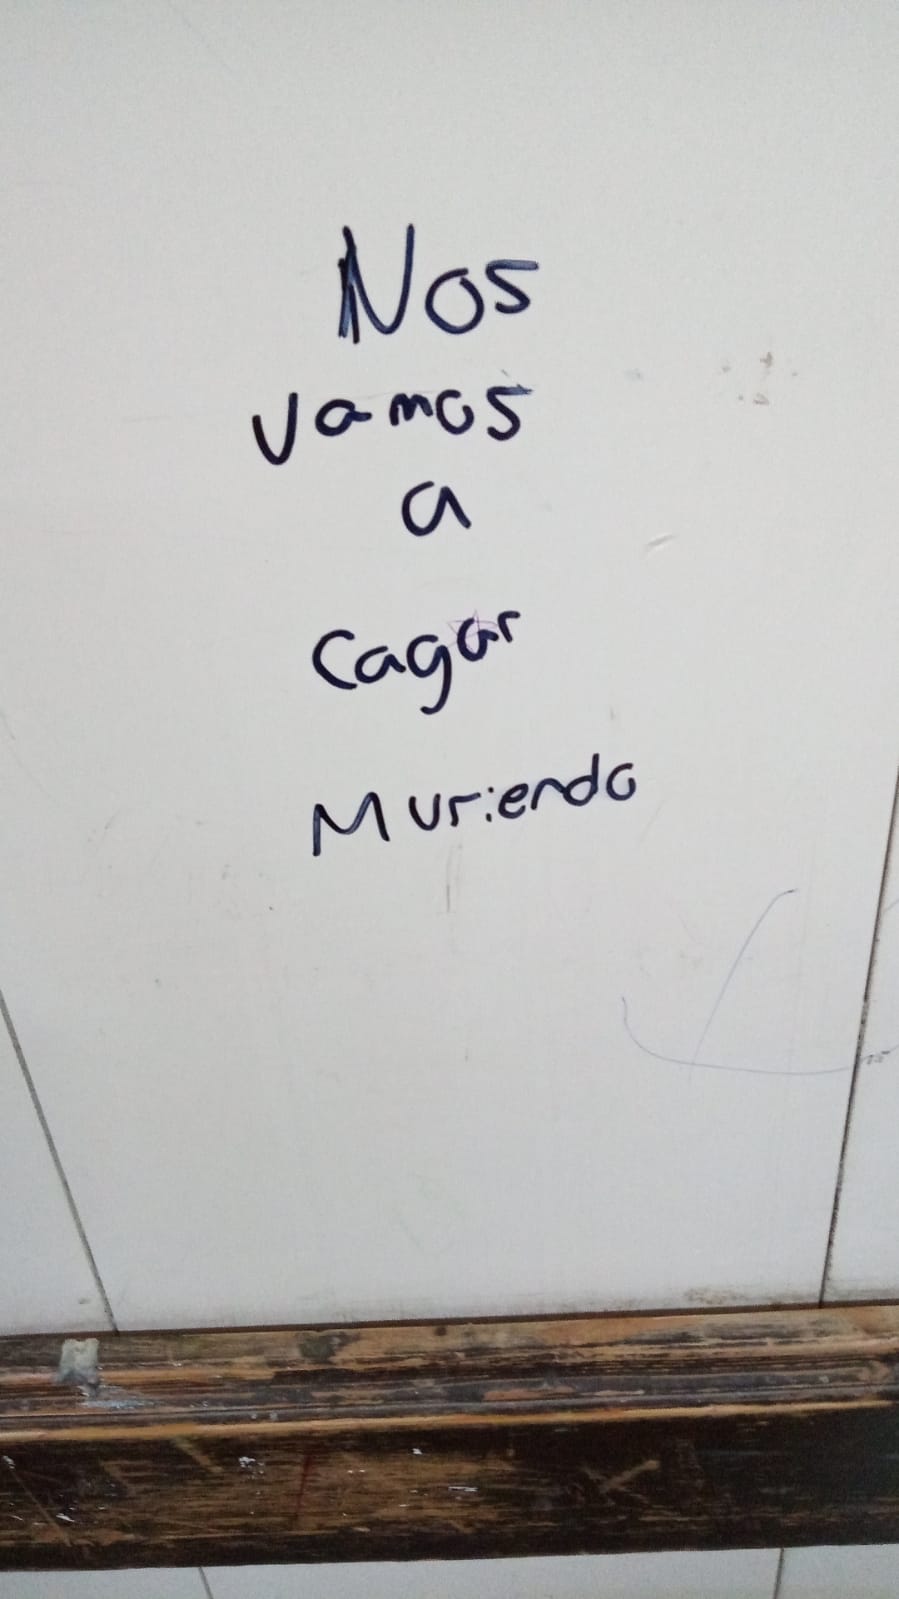 Nos
vamos
a
cagar
Muriendo